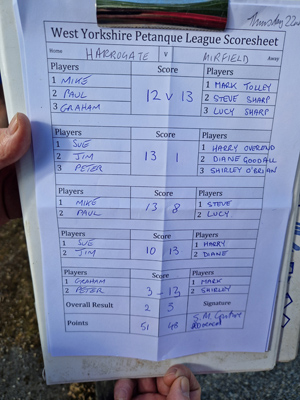 Thursday 22nd
West Yorkshire Petanque League Scoresheet
Home HARROGATE v MIRFIELD Away
Players Score Players
1 MIKE 1 MARK TOLLEY
2 PAUL 12 v 13 2 STEVE SHARP
3 GRAHAM 3 LUCY SHARP
Players Score Players
1 SUE 1 HARRY OVEREND
2 JIM 13 1 2 DIANE GOODALL
3 PETER 3 SHIRLEY O'BRIAN
Players Score Players
1 MIKE 13 8 1 STEVE
2 PAUL 2 LUCY
Players Score Players
1 SUE 10 13 1 HARRY
2 JIM 2 DIANE
Players Score Players
1 GRAHAM 3 - 13 1 MARK
2 PETER 2 SHIRLEY
Overall Result 2 3 Signature
Points 51 48